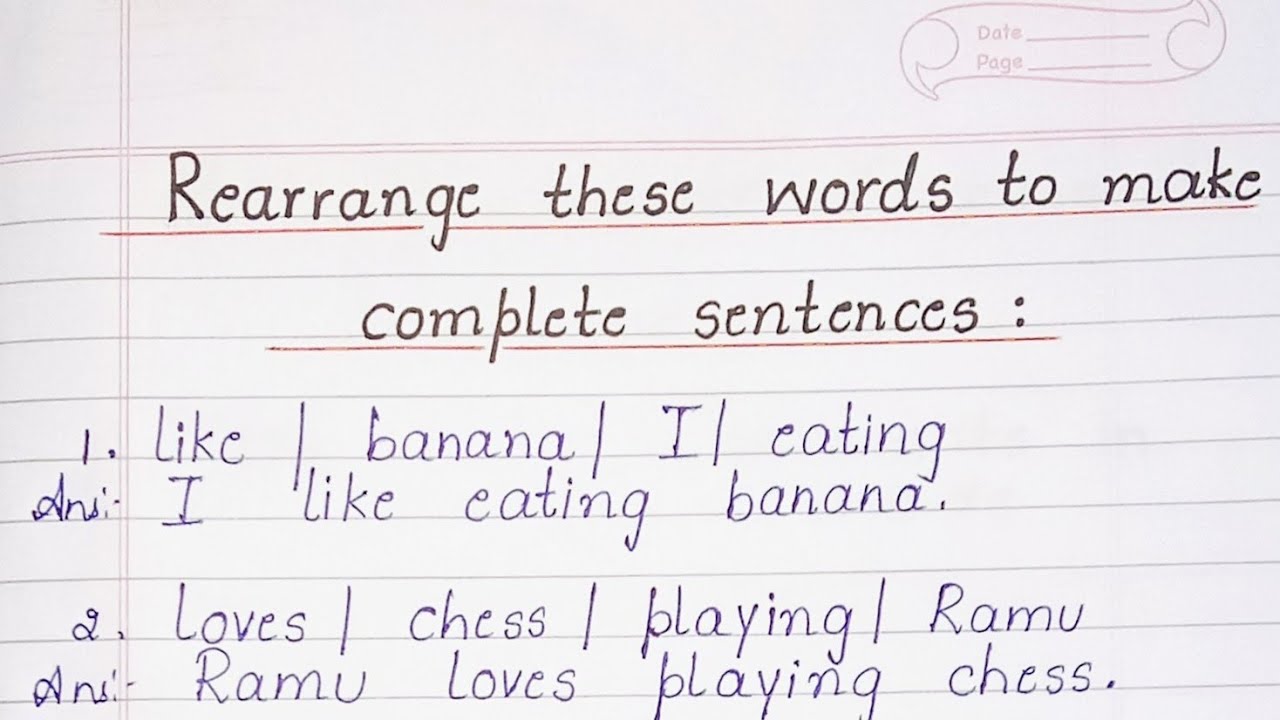 Date
Page
Rearrange these words to make
complete sentences :
1. like | banana | I | eating
Ans:- I like eating banana.
2. loves | chess | playing | Ramu
Ans:- Ramu loves playing chess.